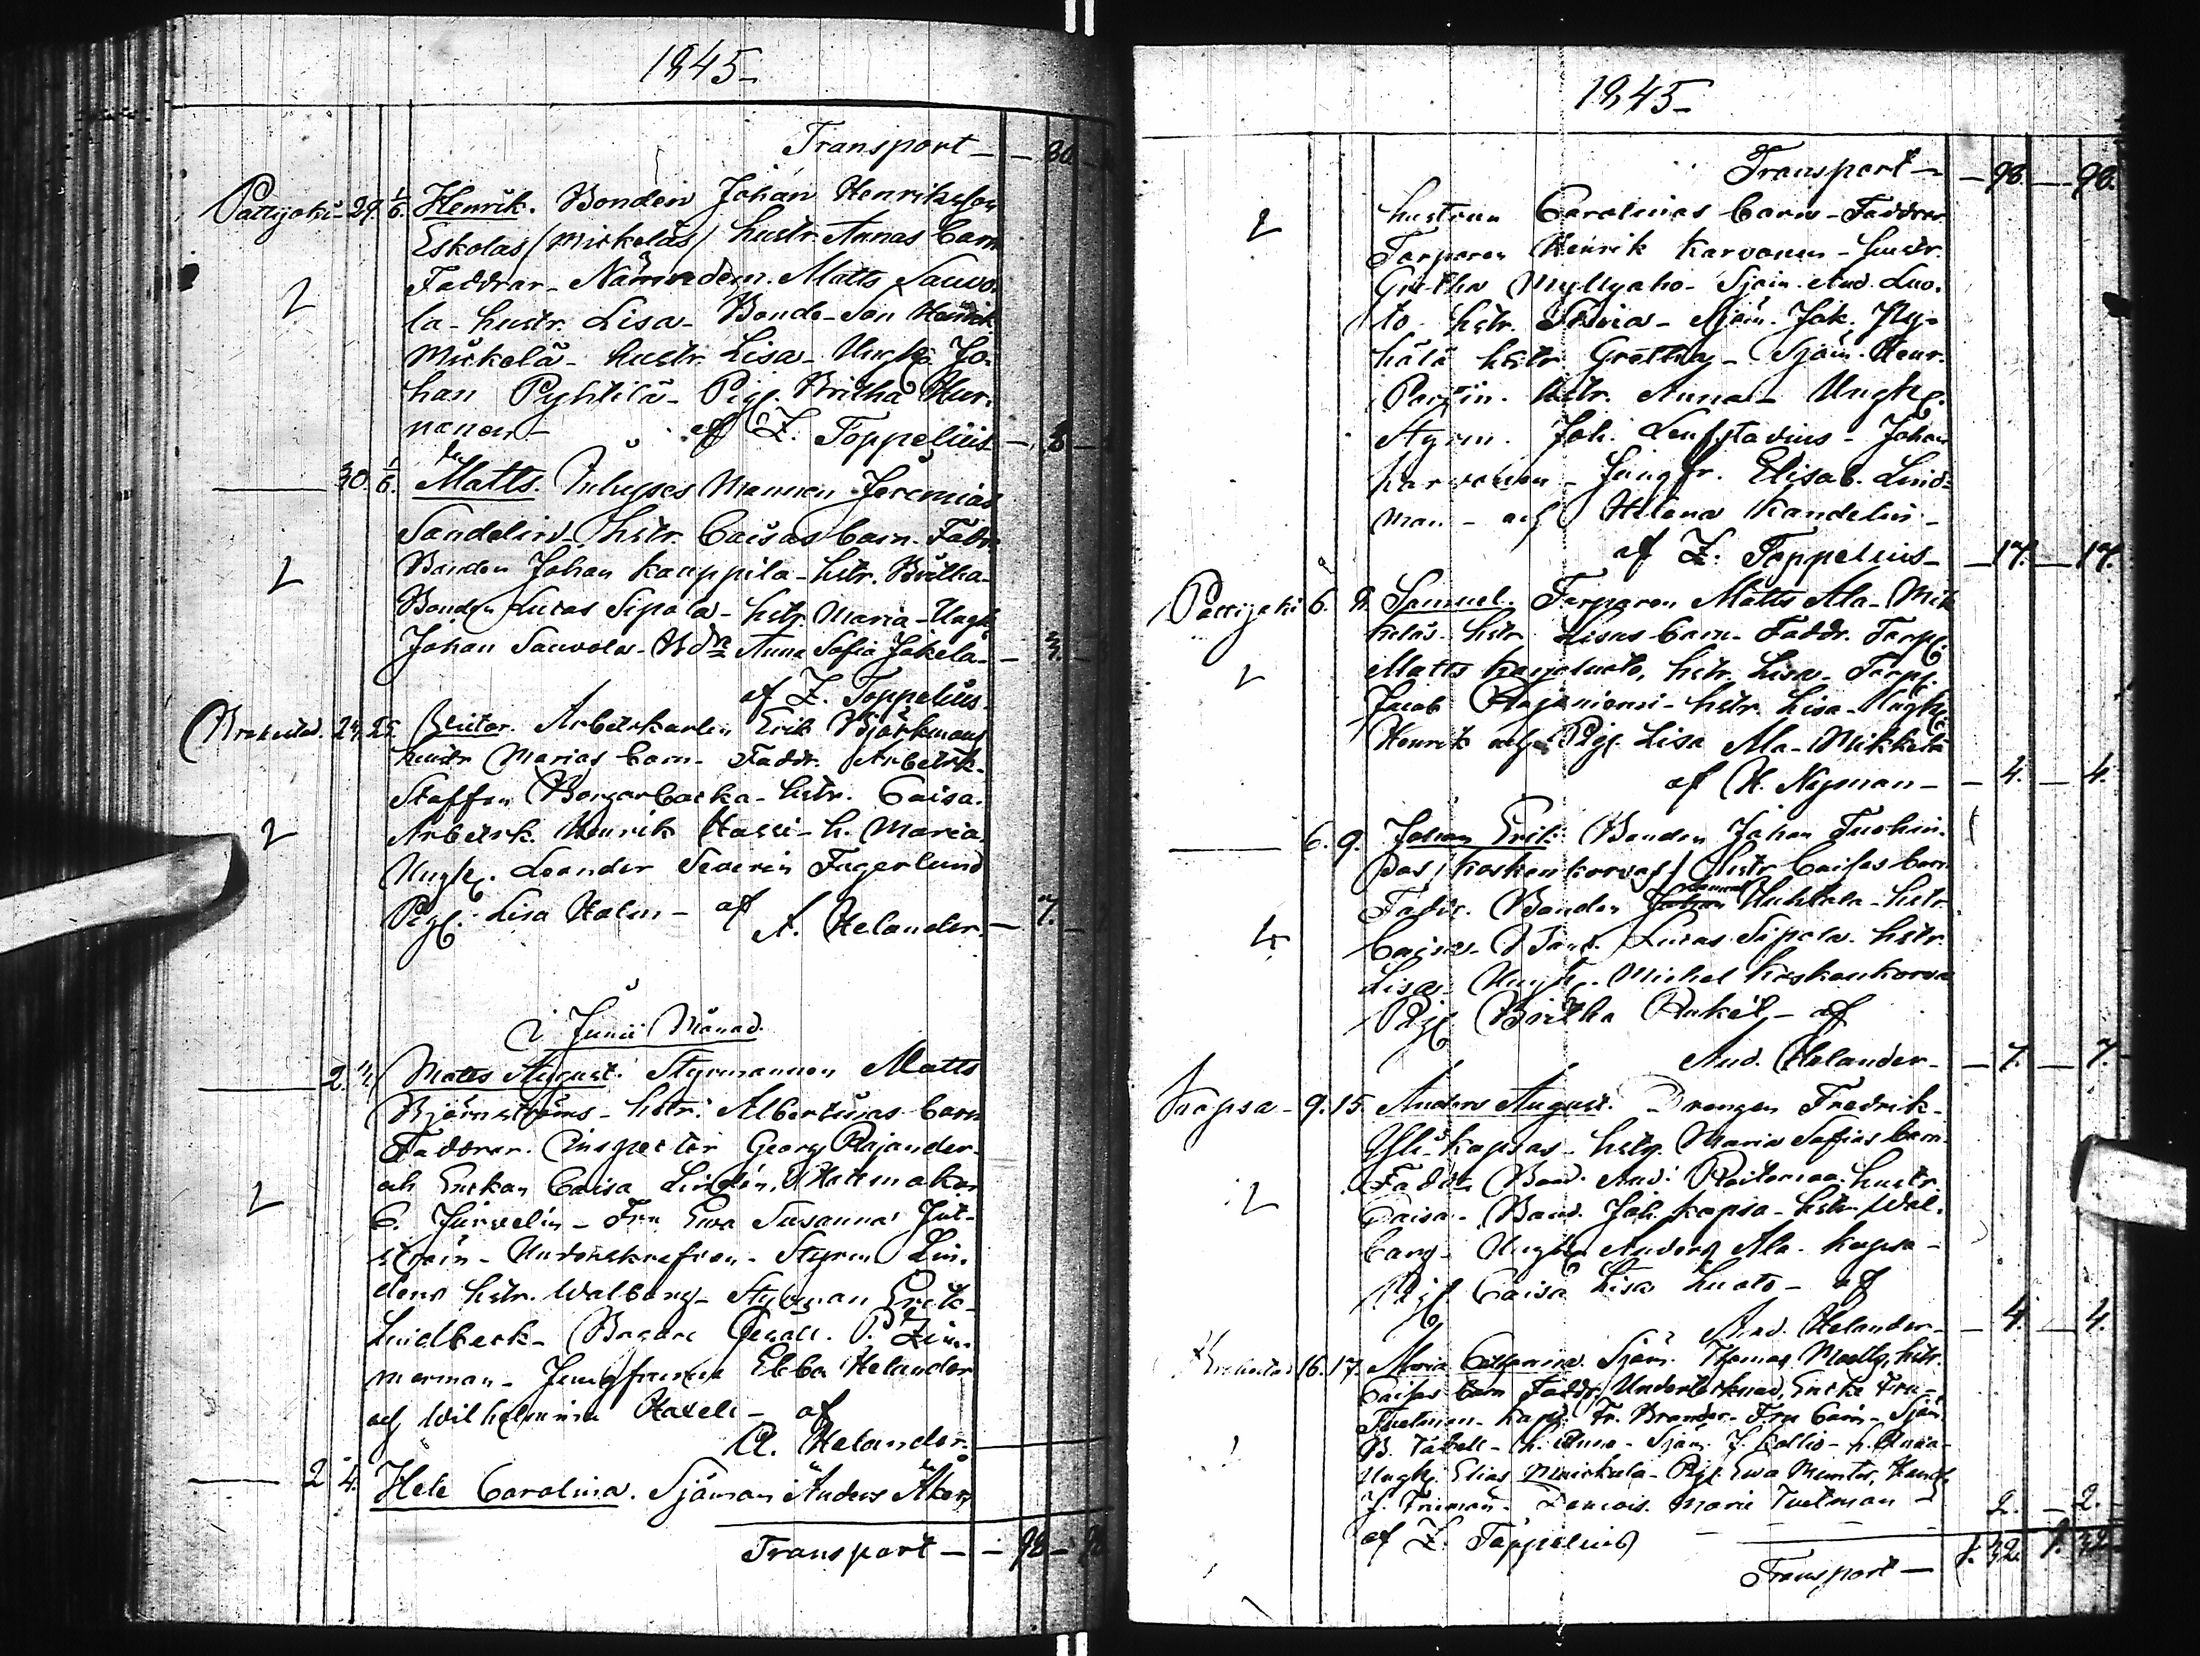 1845
Transport — — 80.
Pattijoki 29. 1/6. Henrik. Bonden Johan Henriksson
Eskolas (Mickeläs) hustr. Annas barn
Faddrar. Nämndem. Matts Sauvo-
la - hustr. Lisa - Bonde-Son Henrik
2
Mickelä - hustr. Lisa - Ungk. Jo-
han Pyhtilä - Pig. Britha Hur-
nanen - af Z. Toppelius —
— 30. 1/6. Matts. Inhyses Mannen Jeremias
Sandelins hstr. Caisas barn. Faddr.
2
Bonden Johan Kauppila - hstr. Britha -
Bonden Lucas Sipola - hstr. Maria - Ungk.
Johan Sauvola - Anna Sofia Jokela - — 3.
af Z. Toppelius.
Brahestad. 24. 25. Arbetskarlen Erik Björkmans
hustr Marias barn - Faddr. Arbetsk.
Staffan Borgarbacka - hstr. Caisa.
2
Arbetsk. Henrik Hassi - h. Maria.
Ungk. Leander Severin Fagerlund
Pig. Lisa Holm - af
A. Helander. — 7.
i Junii Månad.
— 2. Matts August. Styrmannen Matts
Björnströms - hstr. Albertinas barn
Faddrar. Inspector Georg Rajander -
och Enkan Caisa Lindén, Hattmakar
2
C. Jurvelin - Fru Ewa Susanna
ström - Styrm Lin-
dens hstr. Walborg - Styrman Erik
Lindbeck - Bagare Gesäll. P. Zim-
merman - Jungfrurna Ebba Helander
och Wilhelmina Haveli - af
A. Helander.
— 2 4. Hele Carolina. Sjöman Anders Åkers
Transport — — 98 —
1845
Transport — — 98. — 98.
2
hustrun Carolinas barn - Faddrar
Torparen Henrik Karvonen - hustr.
Gretha Myllyaho - Sjöm. And. Luo-
to, hstr. - Sjöm. Jak. Py-
hälä hstr. Gretha - Sjöm. Henr.
hstr. Anna - Ungk.
Styrm. Joh. Leufstadius - Johan
Karvonen - Jungfr. Elisab. Lind-
man - och Helena Kandelin -
af Z. Toppelius - — 17. — 17.
Pattijoki 6. 8. Samuel. Torparen Matts Ala-Mik
keläs - hstr Lisas barn - Faddr. Torp.
2
Matts Karjaluoto, hstr. Lisa - Torp.
Jacob Rajaniemi - hstr. Lisa - Ungk.
Henrik och Pig. Lisa Ala-Mikkelä
af H. Nyman — — 4. — 4.
— 6. 9. Johan Erik. Bonden Johan
(Koskenkorvas) Hustr Caisas barn
Faddr. Bonden Huhtala - hstr
4
Caisa - Bond. Lucas Sipola. hstr.
Lisa - Ungk. Michel Koskenkorva
Pig. Britha Rakel - af
And. Helander - — 7. — 7.
Kopsa - 9. 15 Anders August. Drengen Fredrik
Yli-Kopsas - hstr. Maria Sofias barn.
Faddr. Bond. And. Raitamaa hustr.
2
Caisa - Bond. Joh. Kopsa - hstr. Wal-
borg - Ungk. Anders Ala-Kopsa -
Pig. Caisa Lisa Luoto - af
And. Helander - — 4. — 4.
Brahestad 16. 17. Maria Catharina. Sjöm. Thomas hstr.
Caisas barn Faddr. Undertecknad, Enke Fru
- Kapt. Fr. Brander - Fru - Sjöm
B. Tabell - h. Anna - Sjöm. J. Kallio - h. Anna -
Ungk. Elias - Pig. Ewa
J. Maria -
af Z. Toppelius — 2. — 2.
Transport — 1. 32. 1. 32